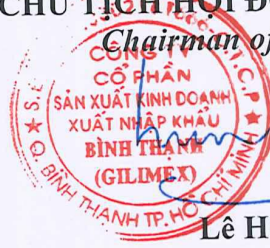 CHỦ TỊCH HỘI Đ
Chairman of
CÔNG TY
CỔ PHẦN
SẢN XUẤT KINH DOANH
XUẤT NHẬP KHẨU
BÌNH THẠNH
(GILIMEX)
Q. BÌNH THẠNH TP. HỒ CHÍ MINH
Lê H